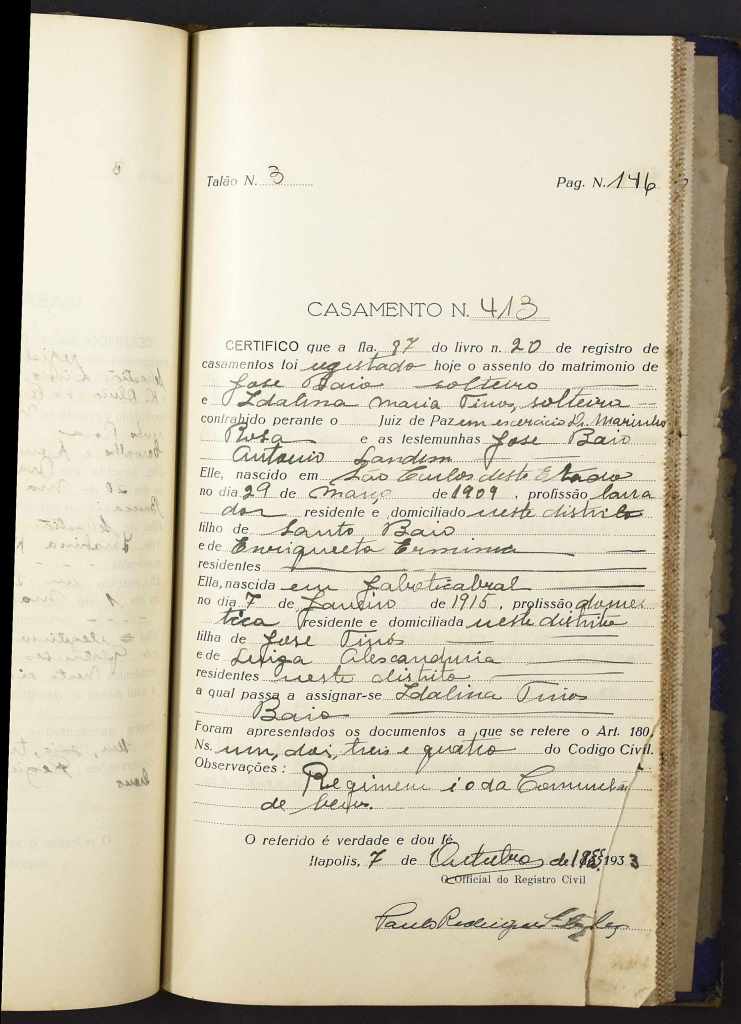 Talão N. 3 Pag. N. 146
CASAMENTO N. 413
CERTIFICO que a fla. 87 do livro n. 20 de registro de
casamentos foi registado hoje o assento do matrimonio de
José Baio solteiro
e Idalina Maria Tinos, solteira
contrahido perante o Juiz de Paz em exercicio Dr. Marinho
Rosa e as testemunhas José Baio
Antonio Landim
Elle, nascido em São Carlos deste Estado
no dia 29 de Março de 1909, profissão lavra
dor residente e domiciliado neste districto
filho de Santo Baio
e de Enriqueta Erminia
residentes
Ella, nascida em Jaboticabral
no dia 7 de Janeiro de 1915, profissão domes
tica residente e domiciliada neste districto
filha de José Tinos
e de Luiza
residentes neste districto
a qual passa a assignar-se Idalina Tinos
Baio
Foram apresentados os documentos a que se refere o Art. 180,
Ns. um, doi, treis e quatro do Codigo Civil.
Observações:
Regimem é o da Comunhão
de bens.
O referido é verdade e dou fé
Itapolis, 7 de Outubro de 1933
O Official do Registro Civil
Paulo Rodrigues